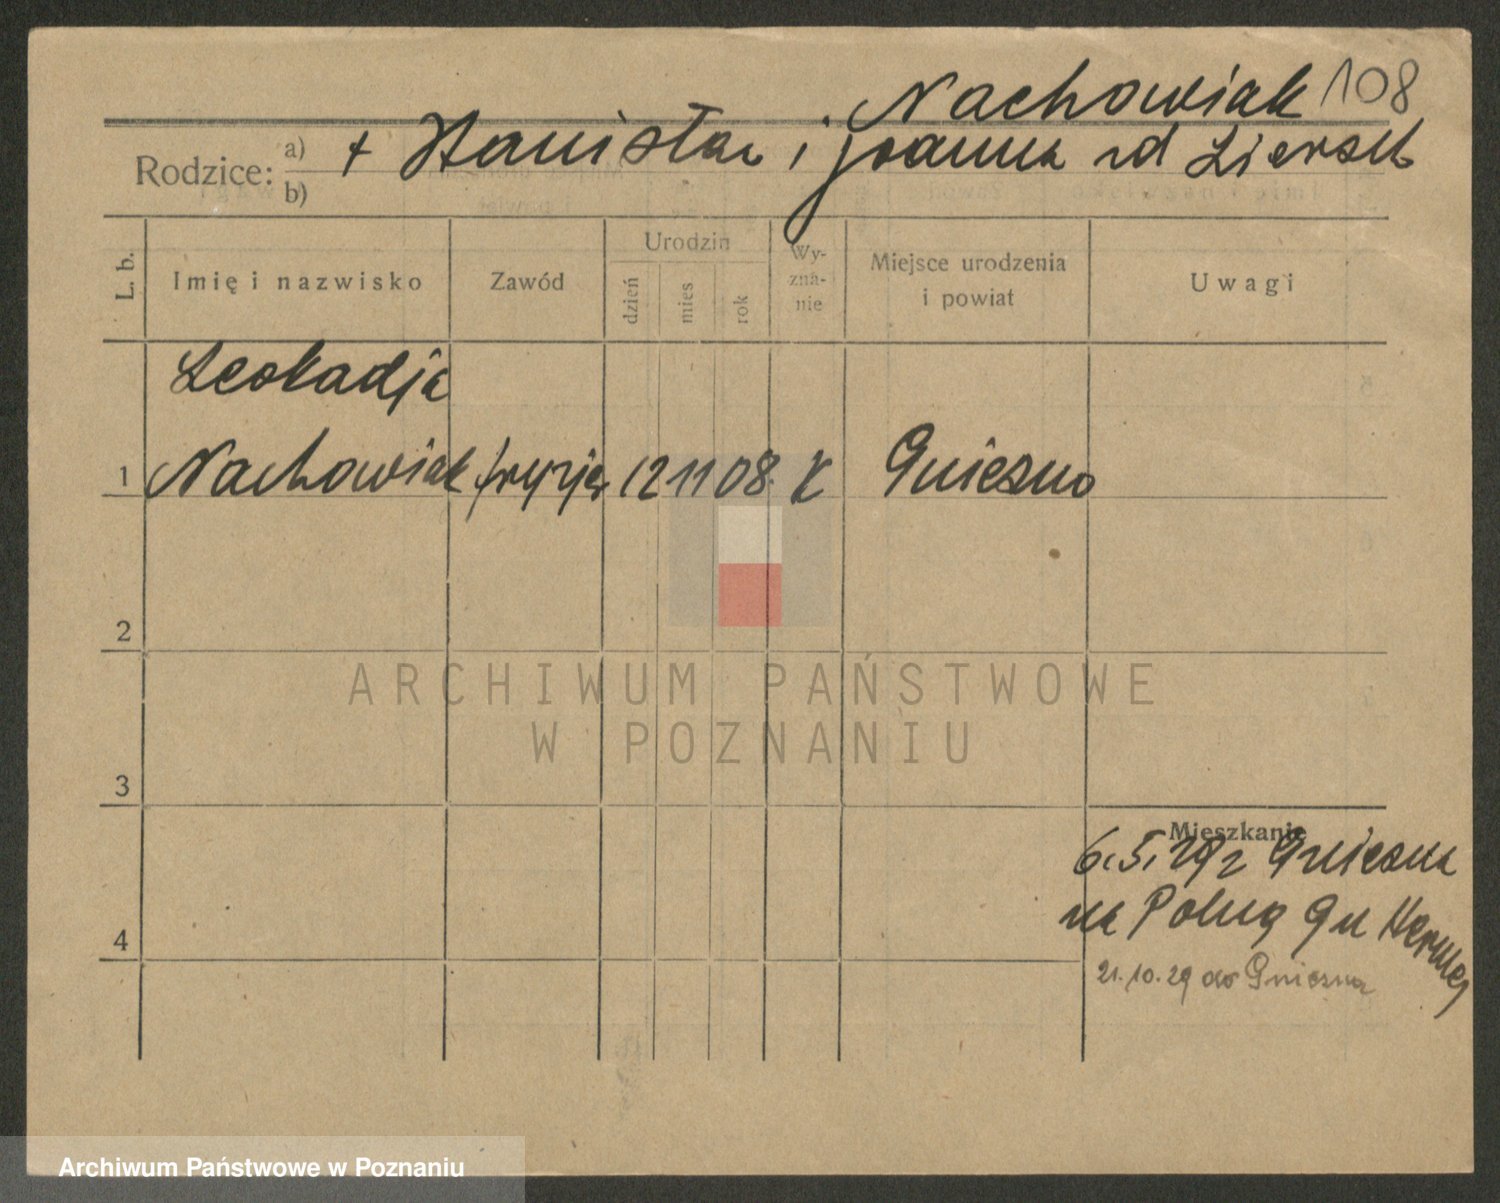 Nachowiak 108
Rodzice: a) b) + Stanisław i Joanna
L. b. Imię i nazwisko Zawód Urodzin dzień mies rok Wy-zna-nie Miejsce urodzenia i powiat Uwagi
Leokadja
1 Nachowiak fryzjer 12 11 08. K Gniezno
2
ARCHIWUM PAŃSTWOWE
W POZNANIU
3
Mieszkanie
6.5.29 z Gniezna
na
4
21.10.29 do Gniezna
Archiwum Państwowe w Poznaniu